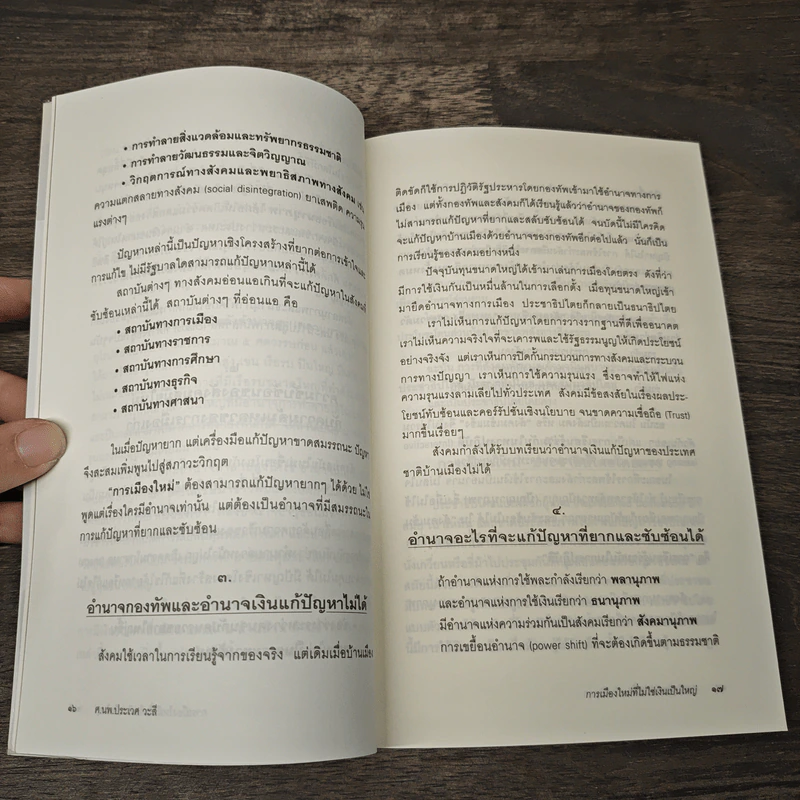 • การทำลายสิ่งแวดล้อมและทรัพยากรธรรมชาติ
• การทำลายวัฒนธรรมและจิตวิญญาณ
• วิกฤตการณ์ทางสังคมและพยาธิสภาพทางสังคม เช่น
ความแตกสลายทางสังคม (social disintegration) ยาเสพติด ความรุน
แรงต่างๆ
ปัญหาเหล่านี้เป็นปัญหาเชิงโครงสร้างที่ยากต่อการเข้าใจและ
การแก้ไข ไม่มีรัฐบาลใดสามารถแก้ปัญหาเหล่านี้ได้
สถาบันต่างๆ ทางสังคมอ่อนแอเกินที่จะแก้ปัญหาในสังคมที่
ซับซ้อนเหล่านี้ได้ สถาบันต่างๆ ที่อ่อนแอ คือ
• สถาบันทางการเมือง
• สถาบันทางราชการ
• สถาบันทางการศึกษา
• สถาบันทางธุรกิจ
• สถาบันทางศาสนา
ในเมื่อปัญหายาก แต่เครื่องมือแก้ปัญหาขาดสมรรถนะ ปัญหา
จึงสะสมเพิ่มพูนไปสู่สภาวะวิกฤต
"การเมืองใหม่" ต้องสามารถแก้ปัญหายากๆ ได้ด้วย ไม่ใช่
พูดแต่เรื่องใครมีอำนาจเท่านั้น แต่ต้องเป็นอำนาจที่มีสมรรถนะใน
การแก้ปัญหาที่ยากและซับซ้อน
๓.
อำนาจกองทัพและอำนาจเงินแก้ปัญหาไม่ได้
สังคมใช้เวลาในการเรียนรู้จากของจริง แต่เดิมเมื่อบ้านเมือง
๑๖ ศ.นพ.ประเวศ วะสี
ติดขัดก็ใช้การปฏิวัติรัฐประหารโดยกองทัพเข้ามาใช้อำนาจทางการ
เมือง แต่ทั้งกองทัพและสังคมก็ได้เรียนรู้แล้วว่าอำนาจของกองทัพก็
ไม่สามารถแก้ปัญหาที่ยากและสลับซับซ้อนได้ จนบัดนี้ไม่มีใครคิด
จะแก้ปัญหาบ้านเมืองด้วยอำนาจของกองทัพอีกต่อไปแล้ว นั่นก็เป็น
การเรียนรู้ของสังคมอย่างหนึ่ง
ปัจจุบันทุนขนาดใหญ่ได้เข้ามาเล่นการเมืองโดยตรง ดังที่ว่า
มีการใช้เงินกันเป็นหมื่นล้านในการเลือกตั้ง เมื่อทุนขนาดใหญ่เข้า
มายึดอำนาจทางการเมือง ประชาธิปไตยก็กลายเป็นธนาธิปไตย
เราไม่เห็นการแก้ปัญหาโดยการวางรากฐานที่ดีเพื่ออนาคต
เราไม่เห็นความจริงใจที่จะเคารพและใช้รัฐธรรมนูญให้เกิดประโยชน์
อย่างจริงจัง แต่เราเห็นการปิดกั้นกระบวนการทางสังคมและกระบวน
การทางปัญญา เราเห็นการใช้ความรุนแรง ซึ่งอาจทำให้ไฟแห่ง
ความรุนแรงลามเลียไปทั่วประเทศ สังคมมีข้อสงสัยในเรื่องผลประ-
โยชน์ทับซ้อนและคอร์รัปชั่นเชิงนโยบาย จนขาดความเชื่อถือ (Trust)
มากขึ้นเรื่อยๆ
สังคมกำลังได้รับบทเรียนว่าอำนาจเงินแก้ปัญหาของประเทศ
ชาติบ้านเมืองไม่ได้
๔.
อำนาจอะไรที่จะแก้ปัญหาที่ยากและซับซ้อนได้
ถ้าอำนาจแห่งการใช้พละกำลังเรียกว่า พลานุภาพ
และอำนาจแห่งการใช้เงินเรียกว่า ธนานุภาพ
มีอำนาจแห่งความร่วมกันเป็นสังคมเรียกว่า สังคมานุภาพ
การเขยื้อนอำนาจ (power shift) ที่จะต้องเกิดขึ้นตามธรรมชาติ
การเมืองใหม่ที่ไม่ใช่เงินเป็นใหญ่ ๑๗